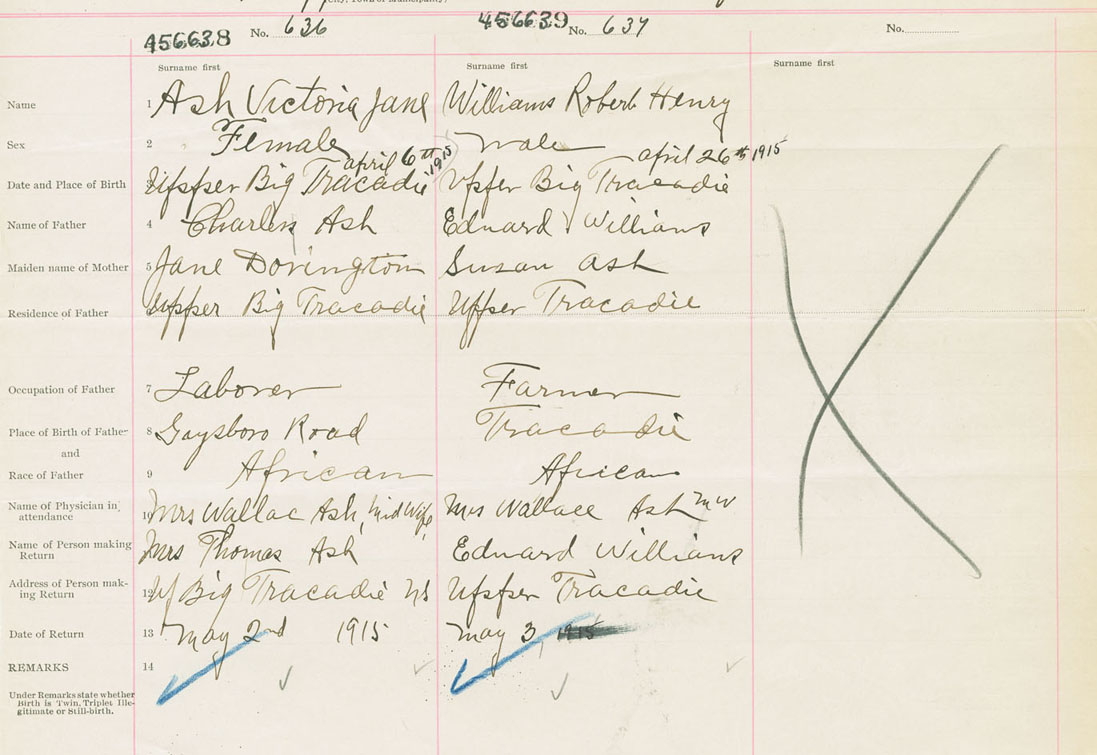 (City, Town or Municipality)
456638 No. 636 456639 No. 637 No.
Surname first Surname first Surname first
Name 1 Ash Victoria Jane Williams Robert Henry
Sex 2 Female male
april 6th 1915 april 26th 1915
Date and Place of Birth 3 Upper Big Tracadie Upper Big Tracadie
Name of Father 4 Charles Ash Edward Williams
Maiden name of Mother 5 Jane Dorington Susan Ash
Residence of Father Upper Big Tracadie Upper Tracadie
Occupation of Father 7 Laborer Farmer
Place of Birth of Father 8 Gaysboro Road Tracadie
and
Race of Father 9 African African
Name of Physician in 10 Mrs Wallac Ash, Mid Wife, Mrs Wallace Ash MW
attendance
Name of Person making Mrs Thomas Ash Edward Williams
Return
Address of Person mak- 12 U Big Tracadie NS Upper Tracadie
ing Return
Date of Return 13 May 2nd 1915 May 3, 1915
REMARKS 14
Under Remarks state whether
Birth is Twin, Triplet Ille-
gitimate or Still-birth.